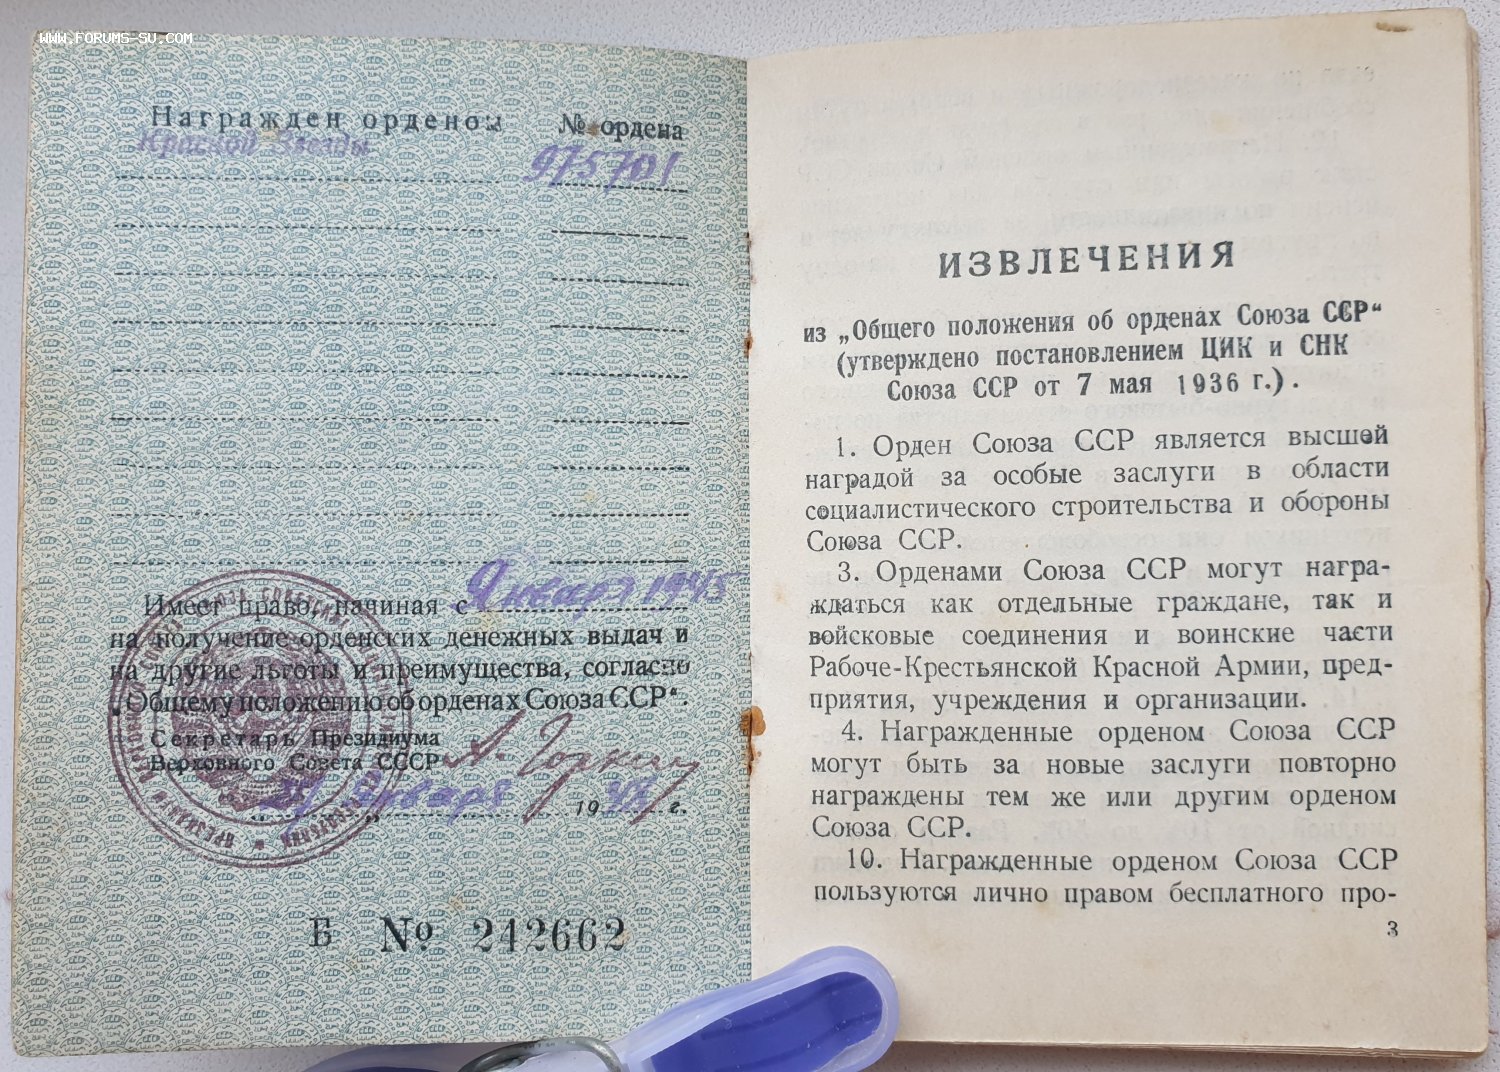 www.forums-su.com
Награжден орденом № ордена
Красной Звезды 975701
Имеет право, начиная с Января 1945
на получение орденских денежных выдач и
на другие льготы и преимущества, согласно
„Общему положению об орденах Союза ССР“.
Секретарь Президиума
Верховного Совета СССР А. Горкин
января 19 г.
Б № 242662
ИЗВЛЕЧЕНИЯ
из „Общего положения об орденах Союза ССР“
(утверждено постановлением ЦИК и СНК
Союза ССР от 7 мая 1936 г.).
1. Орден Союза ССР является высшей
наградой за особые заслуги в области
социалистического строительства и обороны
Союза ССР.
3. Орденами Союза ССР могут награ-
ждаться как отдельные граждане, так и
войсковые соединения и воинские части
Рабоче-Крестьянской Красной Армии, пред-
приятия, учреждения и организации.
4. Награжденные орденом Союза ССР
могут быть за новые заслуги повторно
награждены тем же или другим орденом
Союза ССР.
10. Награжденные орденом Союза ССР
пользуются лично правом бесплатного про-
3